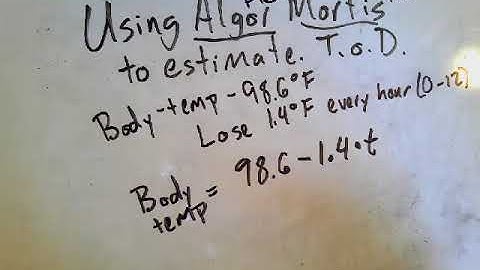 Using Algor Mortis
to estimate. T.o.D.
Body-temp - 98.6°F
Lose 1.4°F every hour (0-12)
Body temp = 98.6 - 1.4•t